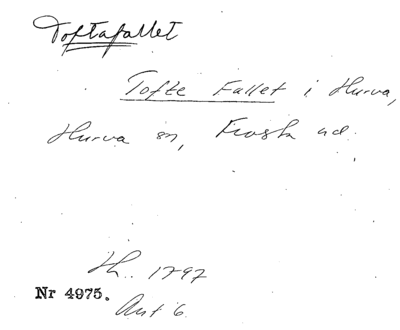 Toftafallet
Tofte Fallet i Hurva,
Hurva sn, Frosta hd.
Lh. 1797
Nr 4975.
Avt 6